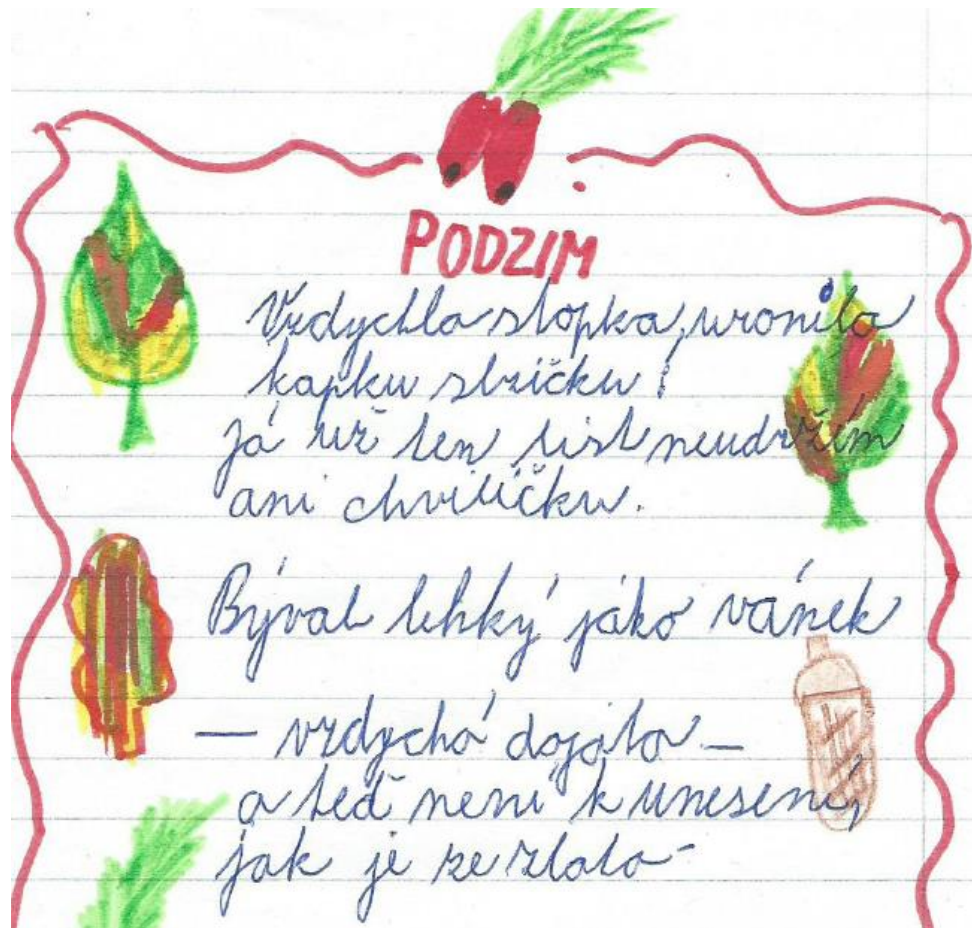 PODZIM
Vzdychla stopka, uronila
kapku slzičku!
já už ten list neudržím
ani chviličku.
Býval lehký jáko vánek
— vzdychá dojato —
a teď není k unesení,
jak je ze zlata